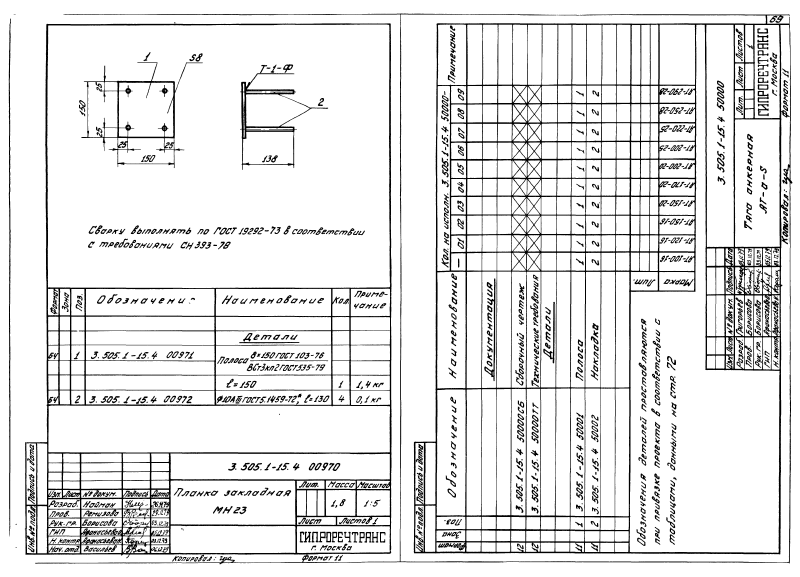 69
1
S8
25
150
25
25
25
150
Т-1-Ф
2
138
Сварку выполнять по ГОСТ 19292-73 в соответствии
с требованиями СН 393-78
Формат Зона Поз. Обозначени Наименование Кол Приме-
чание
Детали
БЧ 1 3.505.1-15.4 00971 Полоса 8×150 ГОСТ 103-76
ВСт3кп2 ГОСТ 535-79
ℓ=150 1 1,4 кг
БЧ 2 3.505.1-15.4 00972 Ф10АIII ГОСТ 5.1459-72, ℓ=130 4 0,1 кг
3.505.1-15.4 00970
Планка закладная
МН23
Лит. Масса Масштаб
1,8 1:5
Лист Листов 1
ГИПРОРЕЧТРАНС
г. Москва
Изм. Лист № докум. Подпись Дата
Разраб. Найман
Пров. Ремизова
Рук. гр. Борисова
ГИП
Н. контр.
Нач. отд. Васильев
Инв. № подл. Подпись и дата
Копировал:
Формат 11
Формат Зона Поз. Обозначение Наименование Кол. на исполн. 3.505.1-15.4 50000- Примечание
— 01 02 03 04 05 06 07 08 09
Документация
12 3.505.1-15.4 50000СБ Сборочный чертеж
12 3.505.1-15.4 50000ТТ Технические требования
Детали
11 1 3.505.1-15.4 50001 Полоса 1 1 1 1 1 1 1 1 1 1
11 2 3.505.1-15.4 50002 Накладка 2 2 2 2 2 2 2 2 2 2
Марка Лит.
АТ-100-16
АТ-120-16
АТ-150-16
АТ-150-20
АТ-170-20
АТ-200-20
АТ-200-25
АТ-220-25
АТ-250-28
АТ-290-28
Обозначения деталей проставляются
при привязке проекта в соответствии с
таблицами, данными на стр. 72
3.505.1-15.4 50000
Тяга анкерная
АТ-а-S
Лит. Лист Листов
1
ГИПРОРЕЧТРАНС
г. Москва
Изм. Лист № докум. Подпись Дата
Разраб.
Пров. Борисова
Рук. гр. Борисова
ГИП
Н. контр.
Инв. № подл. Подпись и дата
Копировал:
Формат 11